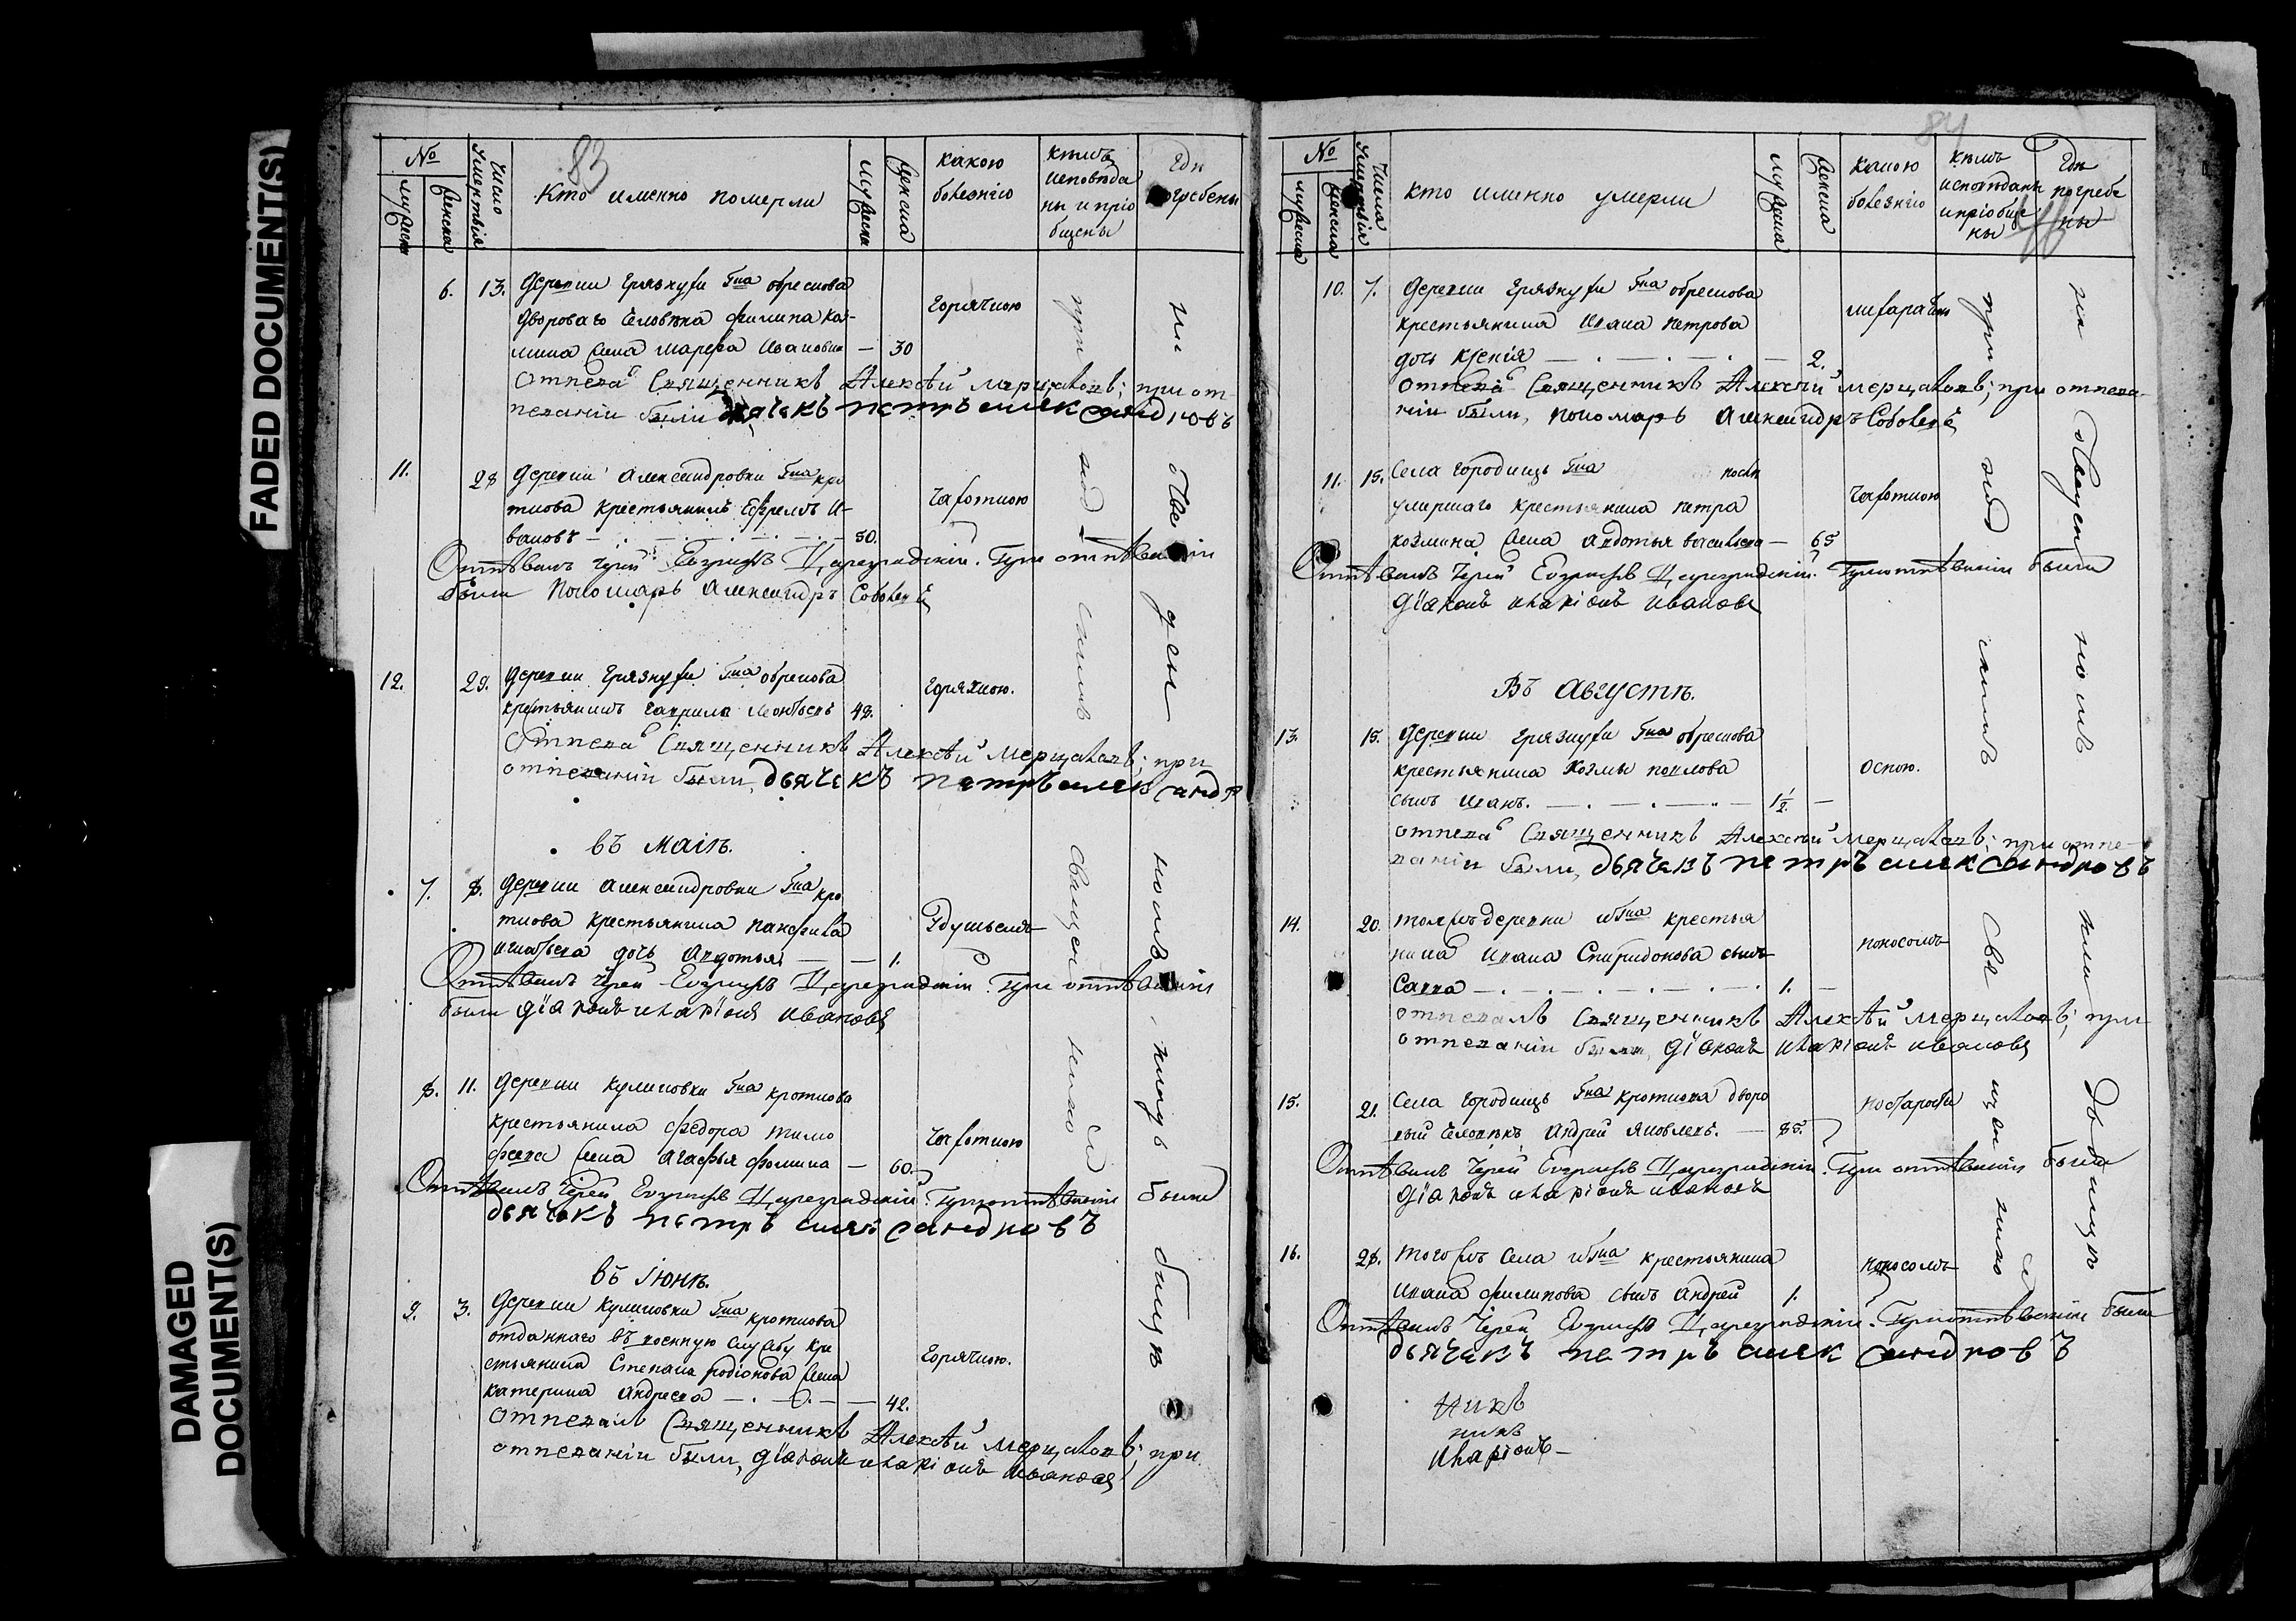 FADED DOCUMENT(S)
DAMAGED
DOCUMENT(S)
83
№
мужеска
женска
Число
умертвія
Кто именно померли
мужеска
женска
какою
болезнію
кѣмъ
исповѣда
ны и пріо
бщены
гдѣ
погребены
6. 13. Деревни Грязнухи Гна Обрескова
двороваго человѣка Филипа
жена Марфа Иванова — 30
горячкою
Отпевалъ Священникъ Алексѣй Мерцаловъ; при от
певаніи были дьячекъ петръ александровъ
11. 28 Деревни Александровки Гна Кро
ткова крестьянинъ Ефремъ И-
вановъ — 50.
чахоткою
Отпѣвалъ Іерей Царегradскій. При отпѣваніи
были Пономарь Александръ Соболевъ
12. 29. Деревни Грязнухи Гна Обрескова
крестьянинъ Гаврила Леонтьевъ 48.
горячкою.
Отпевалъ Священникъ Алексѣй Мерцаловъ; при
отпеваніи были, дьячекъ петръ александр
въ Маіѣ.
7. 8. Деревни Александровки Гна Кро
ткова крестьянина Панфила
Игнатьева дочь Авдотья — 1.
Удушьемъ
Отпѣвалъ Іерей Царегradскій. При отпѣваніи
были діаконъ иларіонъ ивановъ
8. 11. Деревни Куликовки Гна Кроткова
крестьянина Федора Тимо
феева жена Агафья Фомина — 60.
чахоткою
Отпѣвалъ Іерей Царегradскій. При отпѣваніи были
дьячекъ петръ александровъ
въ Іюнѣ.
9. 3. Деревни Куликовки Гна Кроткова
отданнаго въ военную службу кре
стьянина Степана Родіонова жена
Катерина Андреева — 42.
горячкою.
Отпевалъ Священникъ Алексѣй Мерцаловъ; при
отпеваніи были, діаконъ иларіонъ ивановъ
священнико
кладбищѣ
84
№
мужеска
женска
Числа
умертвія
кто именно умерли
мужеска
женска
какою
болезнію
кѣмъ
исповѣданы
и пріобще
ны
гдѣ
погребе
ны
10. 7. Деревни Грязнухи Гна Обрескова
крестьянина Ивана Петрова
дочь Ксенія — 2.
Отпевалъ Священникъ Алексѣй Мерцаловъ; при отпева-
ніи были, пономарь Александръ Соболевъ
11. 15. Села Городищъ Гна послѣ
умершаго крестьянина Петра
Козмина жена Авдотья Васильева — 65
чахоткою
Отпѣвалъ Іерей Царегradскій. При отпѣваніи были
діаконъ иларіонъ ивановъ
Въ Августѣ.
13. 15. Деревни Грязнухи Гна Обрескова
крестьянина Козмы Павлова
сынъ Иванъ. — 1½ —
оспою.
Отпевалъ Священникъ Алексѣй Мерцаловъ; при отпе-
ваніи были, дьячекъ петръ александровъ
14. 20. Той жъ деревни и Гна крестья
нина Ивана Спиридонова сынъ
Савва — 1. —
поносомъ
Отпевалъ Священникъ Алексѣй Мерцаловъ; при
отпеваніи были, діаконъ иларіонъ ивановъ
15. 21. Села Городищъ Гна Кроткова дворо
вый человѣкъ Андрей Яковлевъ. — 85.
по старости
Отпѣвалъ Іерей Царегradскій. При отпѣваніи были
діаконъ иларіонъ ивановъ
16. 28. Того жъ Села и Гна крестьянина
Ивана Филипова сынъ Андрей 1.
поносомъ
Отпѣвалъ Іерей Царегradскій. При отпѣваніи были
дьячекъ петръ александровъ
Иларіонъ